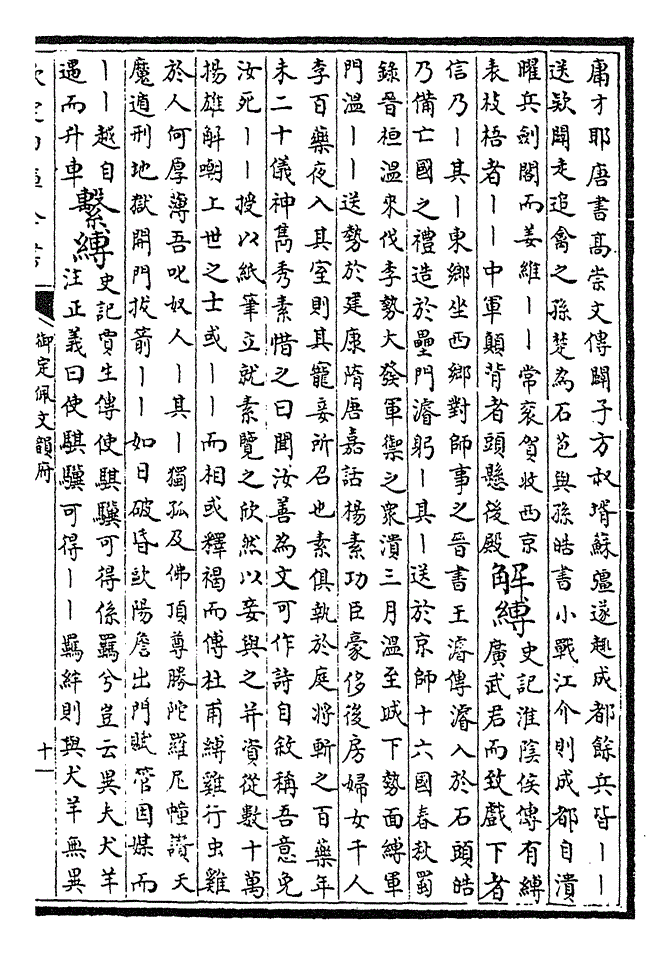 庸才耶唐書高崇文傳闢子方叔壻蘇彊遂趣成都餘兵皆｜｜
送欵闢走追禽之孫楚為石苞與孫皓書小戰江介則成都自潰
曜兵劍閣而姜維｜｜常衮賀收西京
表枝梧者｜｜中軍顛背者頭懸後殿
解縛
史記淮陰侯傳有縛
廣武君而致戲下者
信乃｜其｜東鄉坐西鄉對師事之晉書王濬傳濬入於石頭皓
乃備亡國之禮造於壘門濬躬｜其｜送於京師十六國春秋蜀
錄晉桓溫來伐李勢大發軍禦之衆潰三月溫至城下勢面縛軍
門溫｜｜送勢於建康隋唐嘉話楊素功臣豪侈後房婦女千人
李百藥夜入其室則其寵妾所召也素俱執於庭將斬之百藥年
未二十儀神雋秀素惜之曰聞汝善為文可作詩自敘稱吾意免
汝死｜｜授以紙筆立就素覽之欣然以妾與之并資從數十萬
揚雄解嘲上世之士或｜｜而相或釋褐而傅杜甫縛雞行虫雞
於人何厚薄吾叱奴人｜其｜獨孤及佛頂尊勝陀羅尼幢讚天
魔逭刑地獄開門拔箭｜｜如日破昏歐陽詹出門賦管因媒而
｜｜越自
遇而升車
繫縛
史記賈生傳使騏驥可得係羈兮豈云異夫犬羊
注正義曰使騏驥可得｜｜羈絆則與犬羊無異
御定佩文韻府
十一